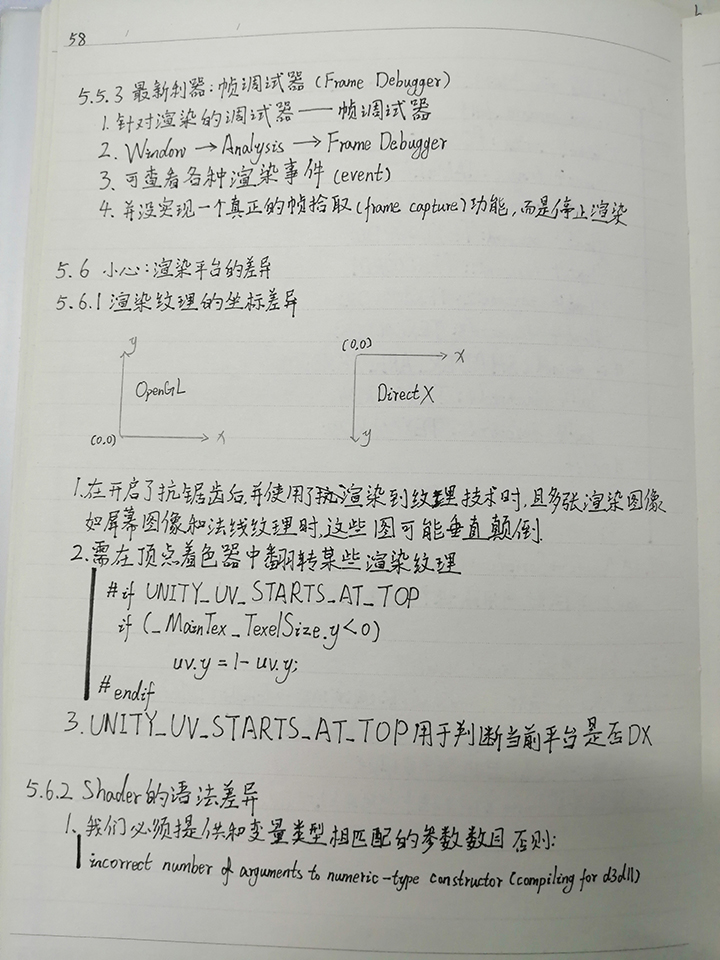 58
5.5.3 最新利器:帧调试器(Frame Debugger)
1. 针对渲染的调试器——帧调试器
2. Window→Analysis→Frame Debugger
3. 可查看各种渲染事件(event)
4. 并没实现一个真正的帧拾取(frame capture)功能,而是停止渲染
5.6 小心:渲染平台的差异
5.6.1 渲染纹理的坐标差异
y (0,0) x
OpenGL DirectX
(0,0) x y
1. 在开启了抗锯齿后,并使用了渲染到纹理技术时,且多张渲染图像
如屏幕图像和法线纹理时,这些图可能垂直颠倒.
2. 需在顶点着色器中翻转某些渲染纹理
#if UNITY_UV_STARTS_AT_TOP
if (_MainTex_TexelSize.y<0)
uv.y = 1- uv.y;
#endif
3. UNITY_UV_STARTS_AT_TOP用于判断当前平台是否DX
5.6.2 Shader的语法差异
1. 我们必须提供和变量类型相匹配的参数数目 否则:
incorrect number of arguments to numeric-type constructor (compiling for d3d11)